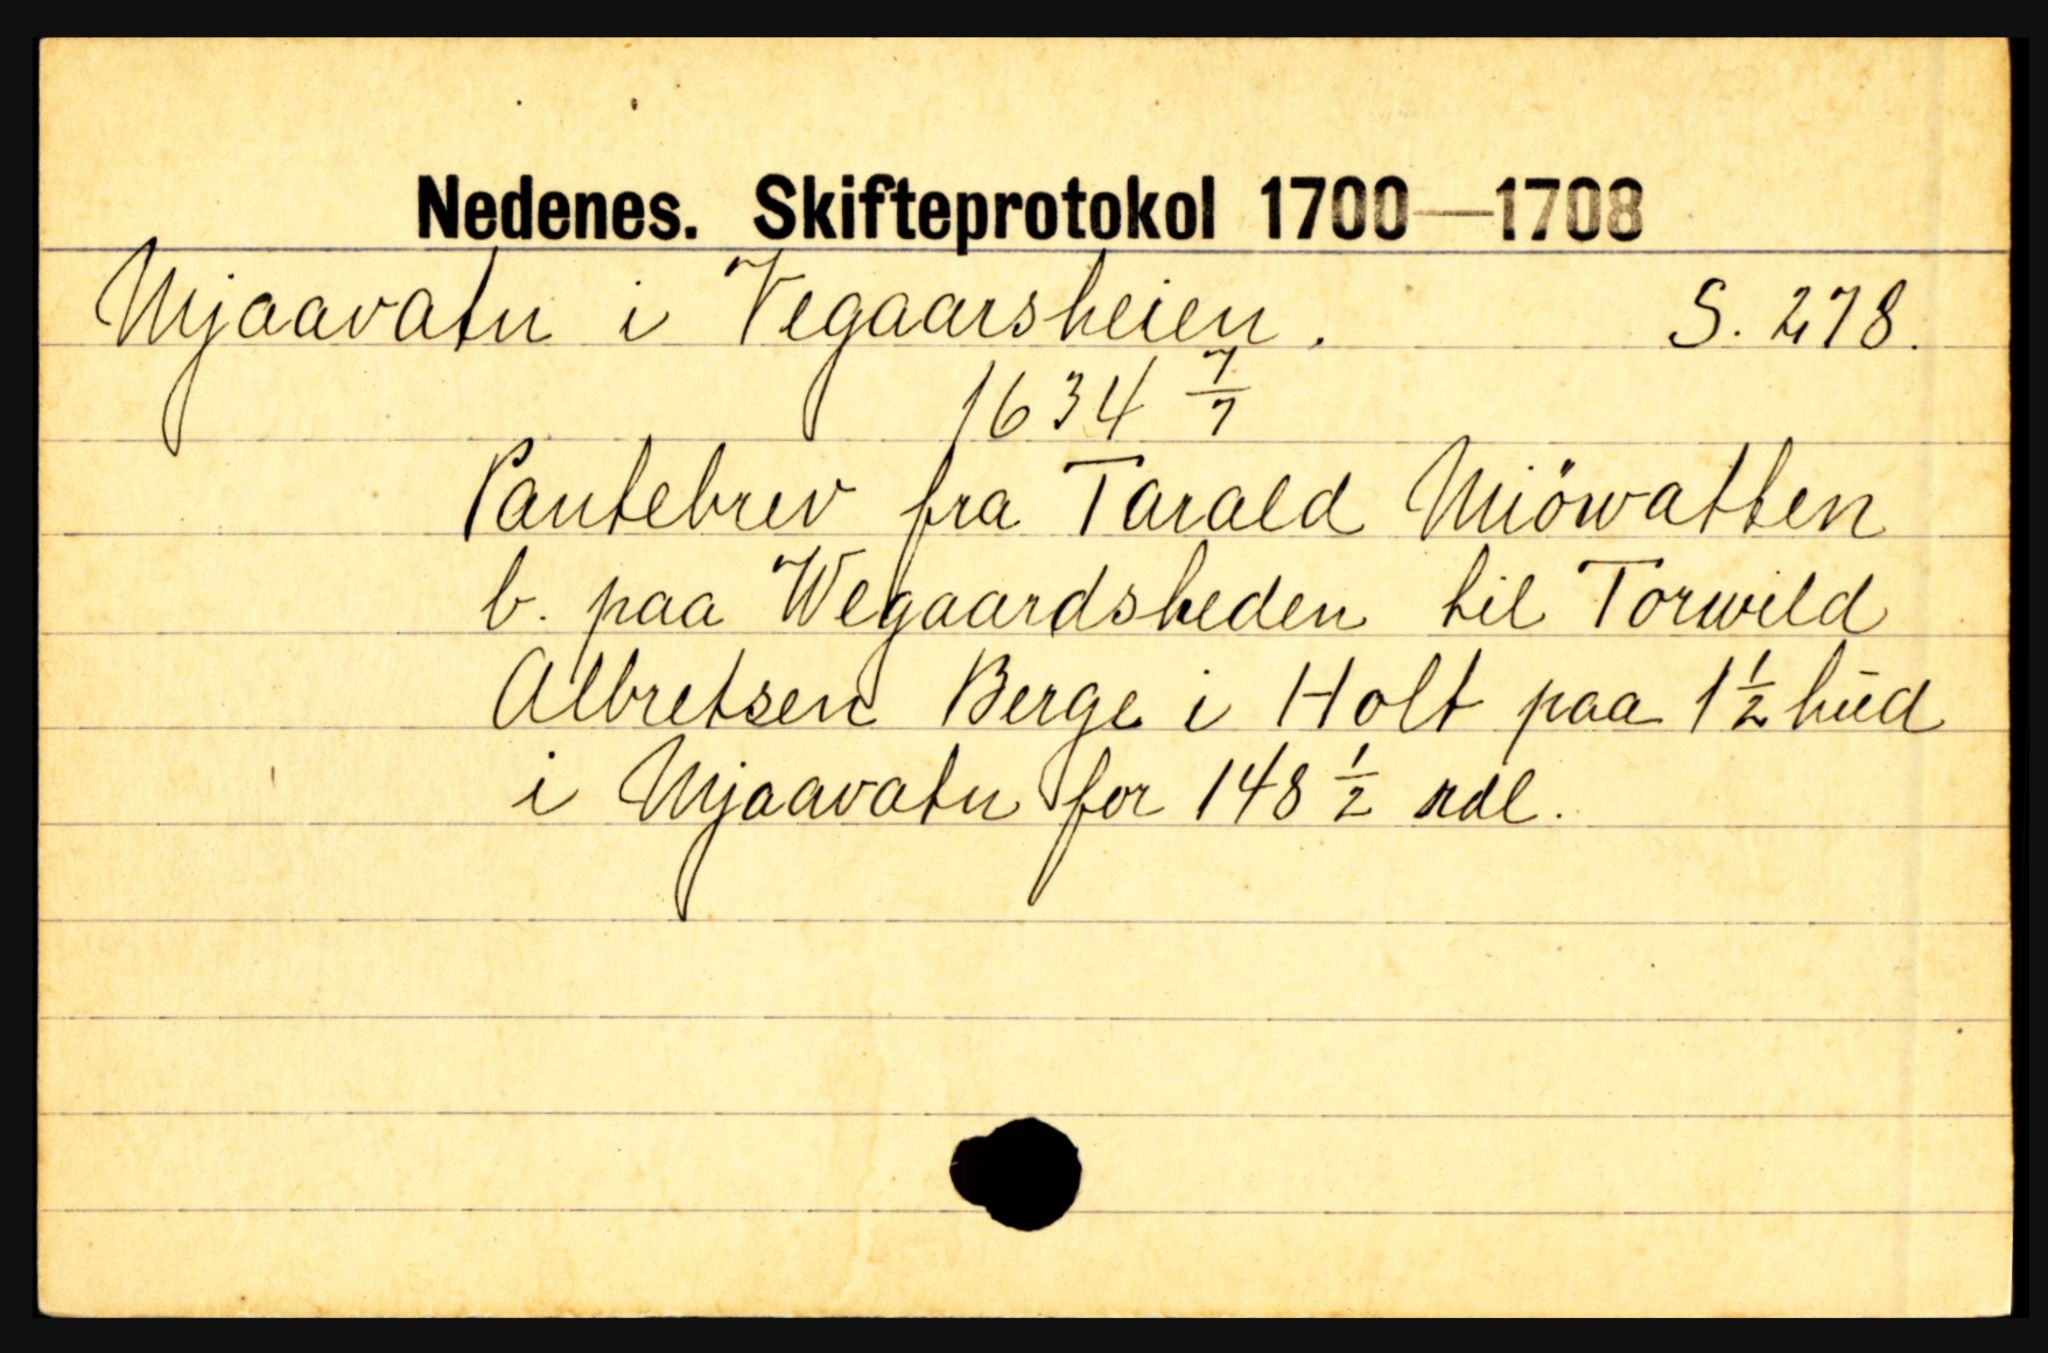 Nedenes. Skifteprotokol 1700—1708
Mjaavatn i Vegaarsheien. S. 278.
1634 7/7
Pantebrev fra Tarald Miöwatten
b. paa Wegaardsheden til Torwild
Albretsen Berge i Holt paa 1 1/2 hud
i Mjaavatn for 148 1/2 rdl.